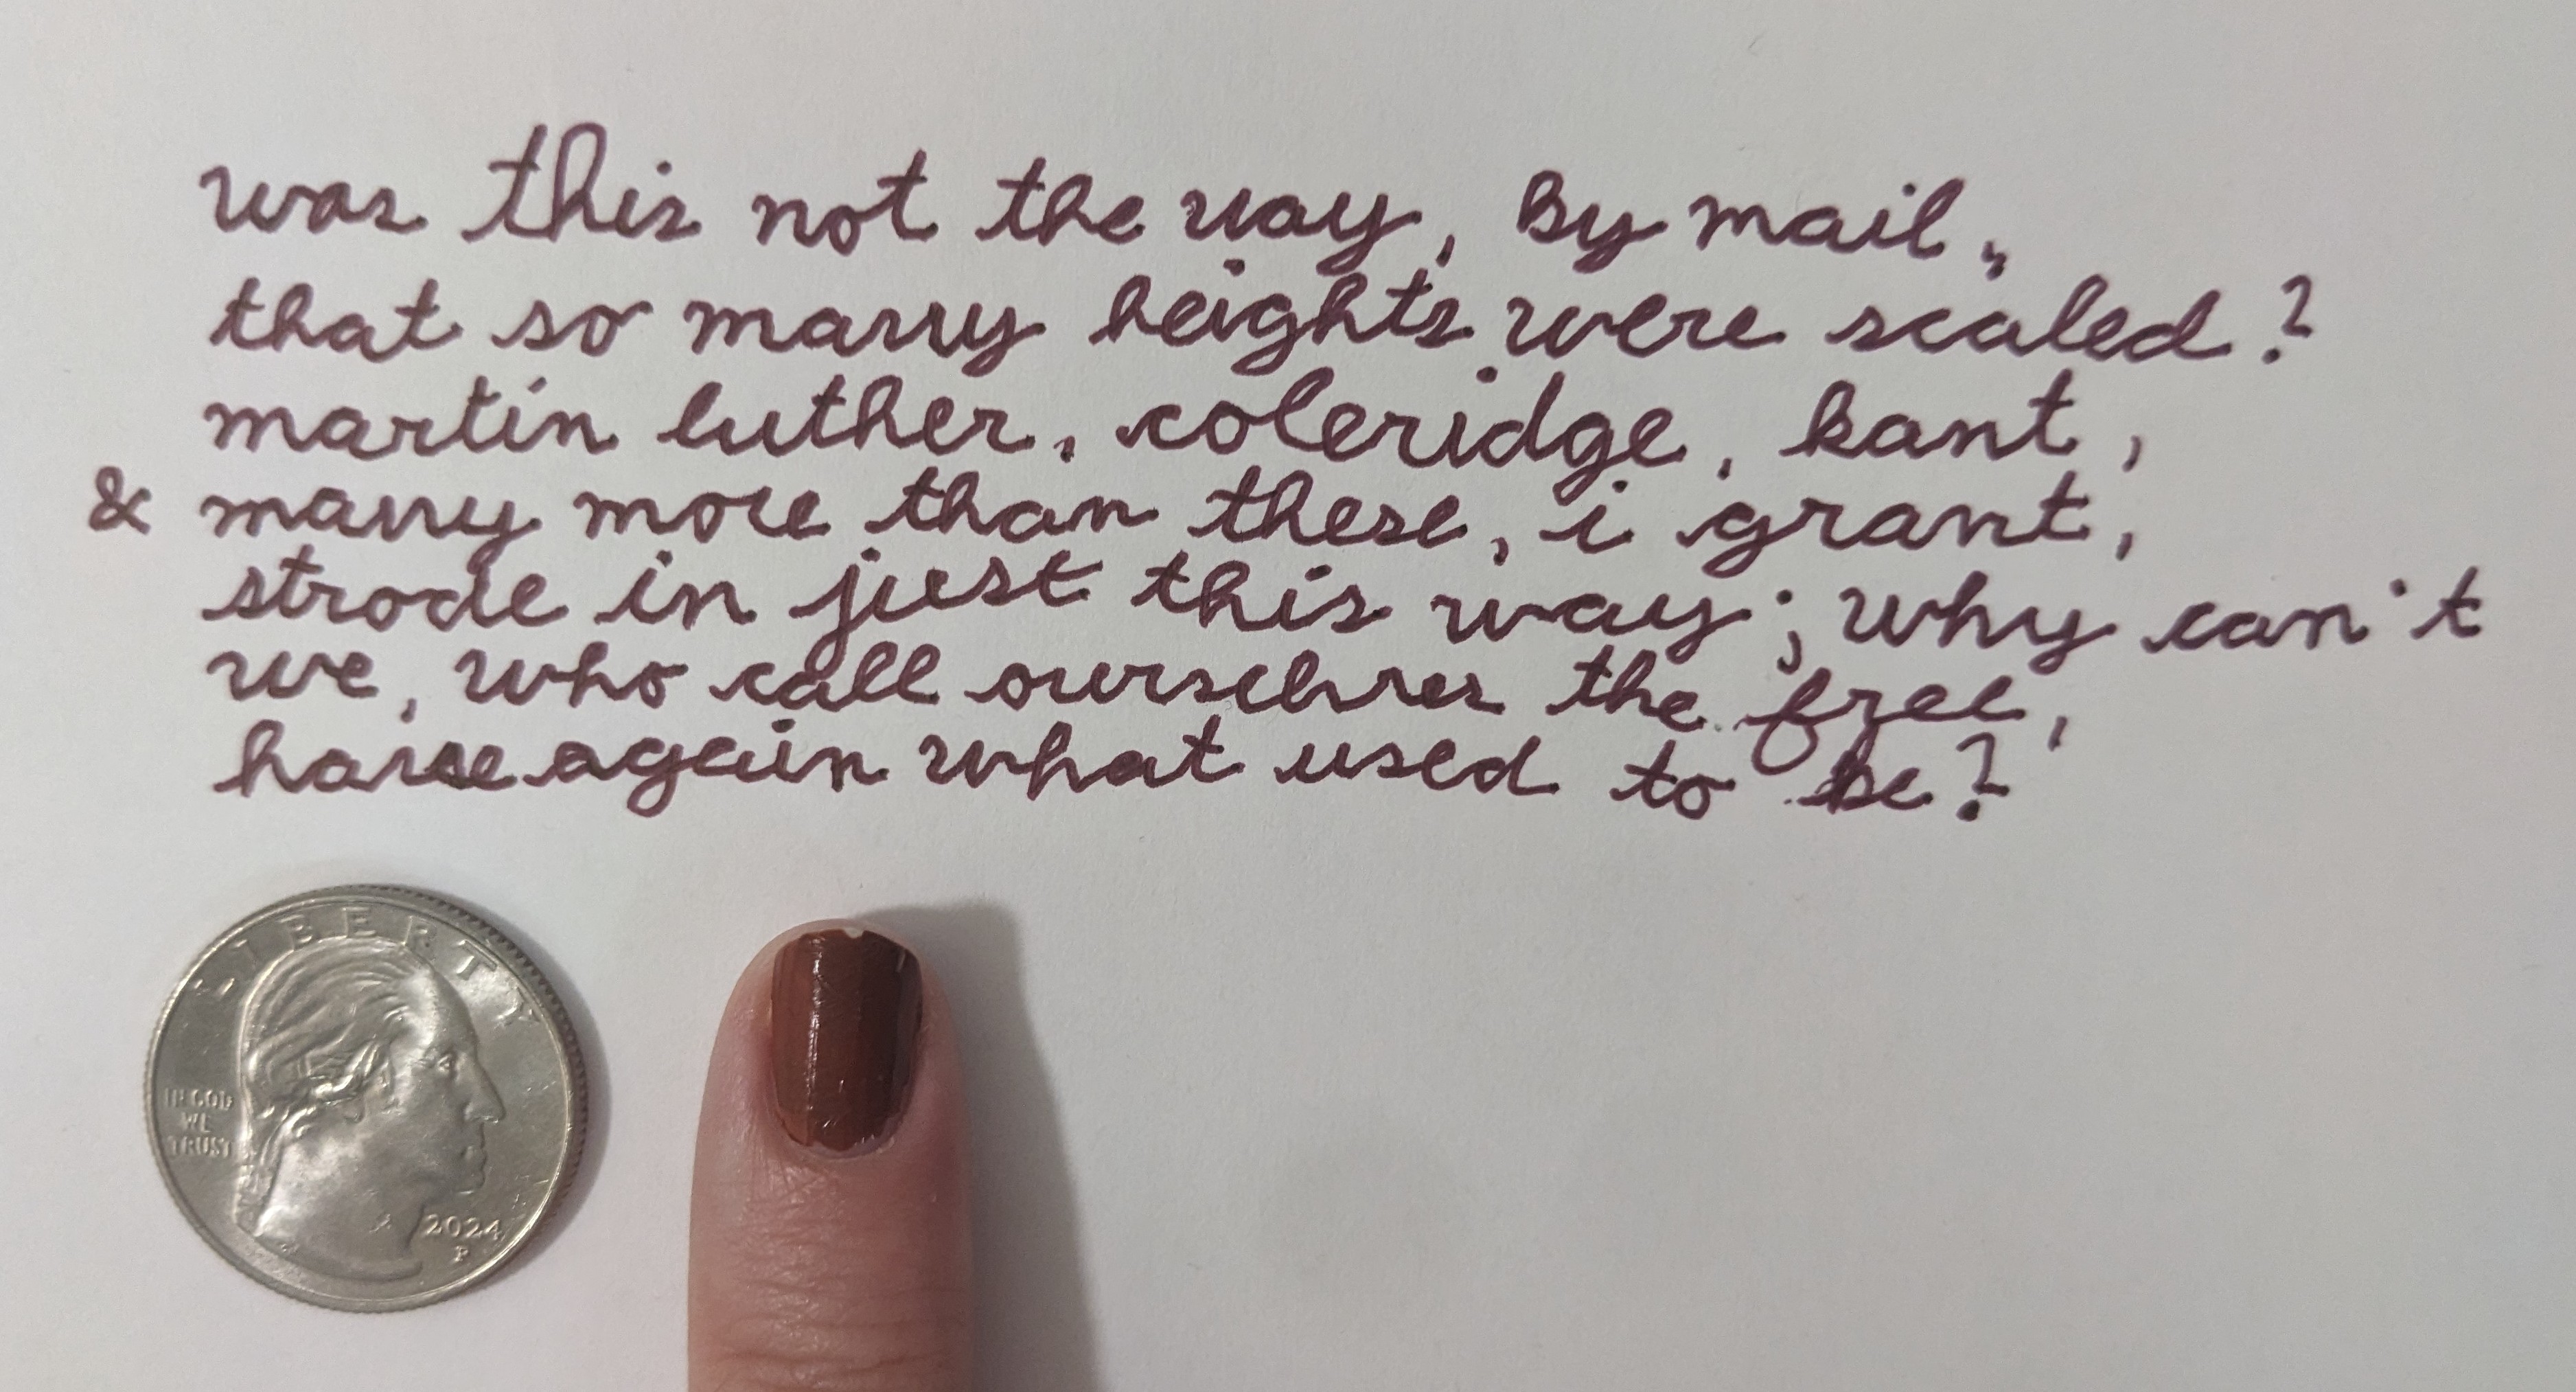 was this not the way, by mail,
that so many heights were scaled?
martin luther, coleridge, kant,
& many more than these, i grant,
strode in just this way; why can't
we, who call ourselves the free,
have again what used to be?
LIBERTY
IN GOD
WE
TRUST
2024
P